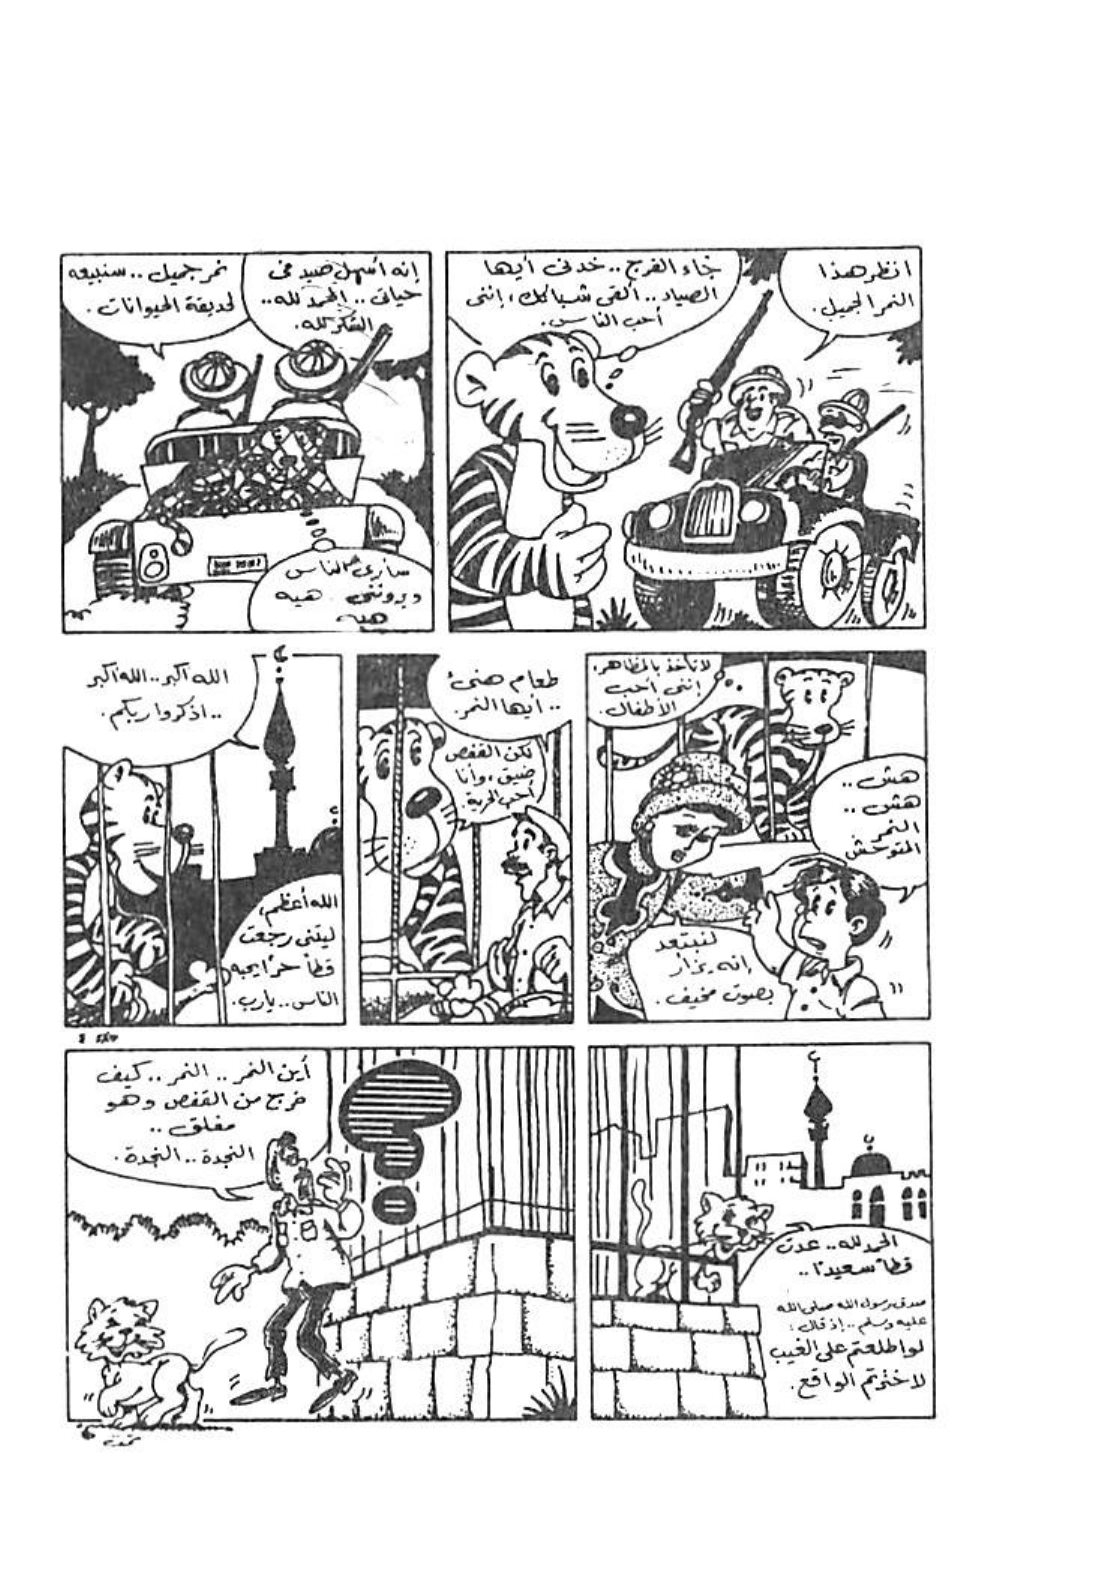 انظر هذا
النمر الجميل.
جاء الفرج .. خدنى أيها
الصياد .. ألقى شباكك ، إننى
أحب الناس.
إنه أسهل صيد فى
حياتى .. الحمد لله ..
الشكر لله.
نمر جميل .. سنبيعه
لحديقة الحيوانات .
سأرى الناس
ويروننى . هيه
هيه
لا تأخذ بالمظاهر،
إننى أحب
الأطفال.
هش ..
هش ..
النمر
المتوحش
لنبتعد
إنه يزأر
بصوت مخيف .
طعام هنئ
.. أيها النمر.
لكن القفص
ضيق ، وأنا
أحب الحرية.
الله أكبر .. الله أكبر
.. اذكروا ربكم .
الله أعظم ،
ليتنى رجعت
قطاً حرًا يحبه
الناس .. يارب .
الحمد لله .. عدت
قطاً سعيدًا ..
صدق رسول الله صلى الله
عليه وسلم .. إذ قال :
لو اطلعتم على الغيب
لاخترتم الواقع .
أين النمر .. النمر .. كيف
خرج من القفص وهو
مغلق ..
النجدة .. النجدة .